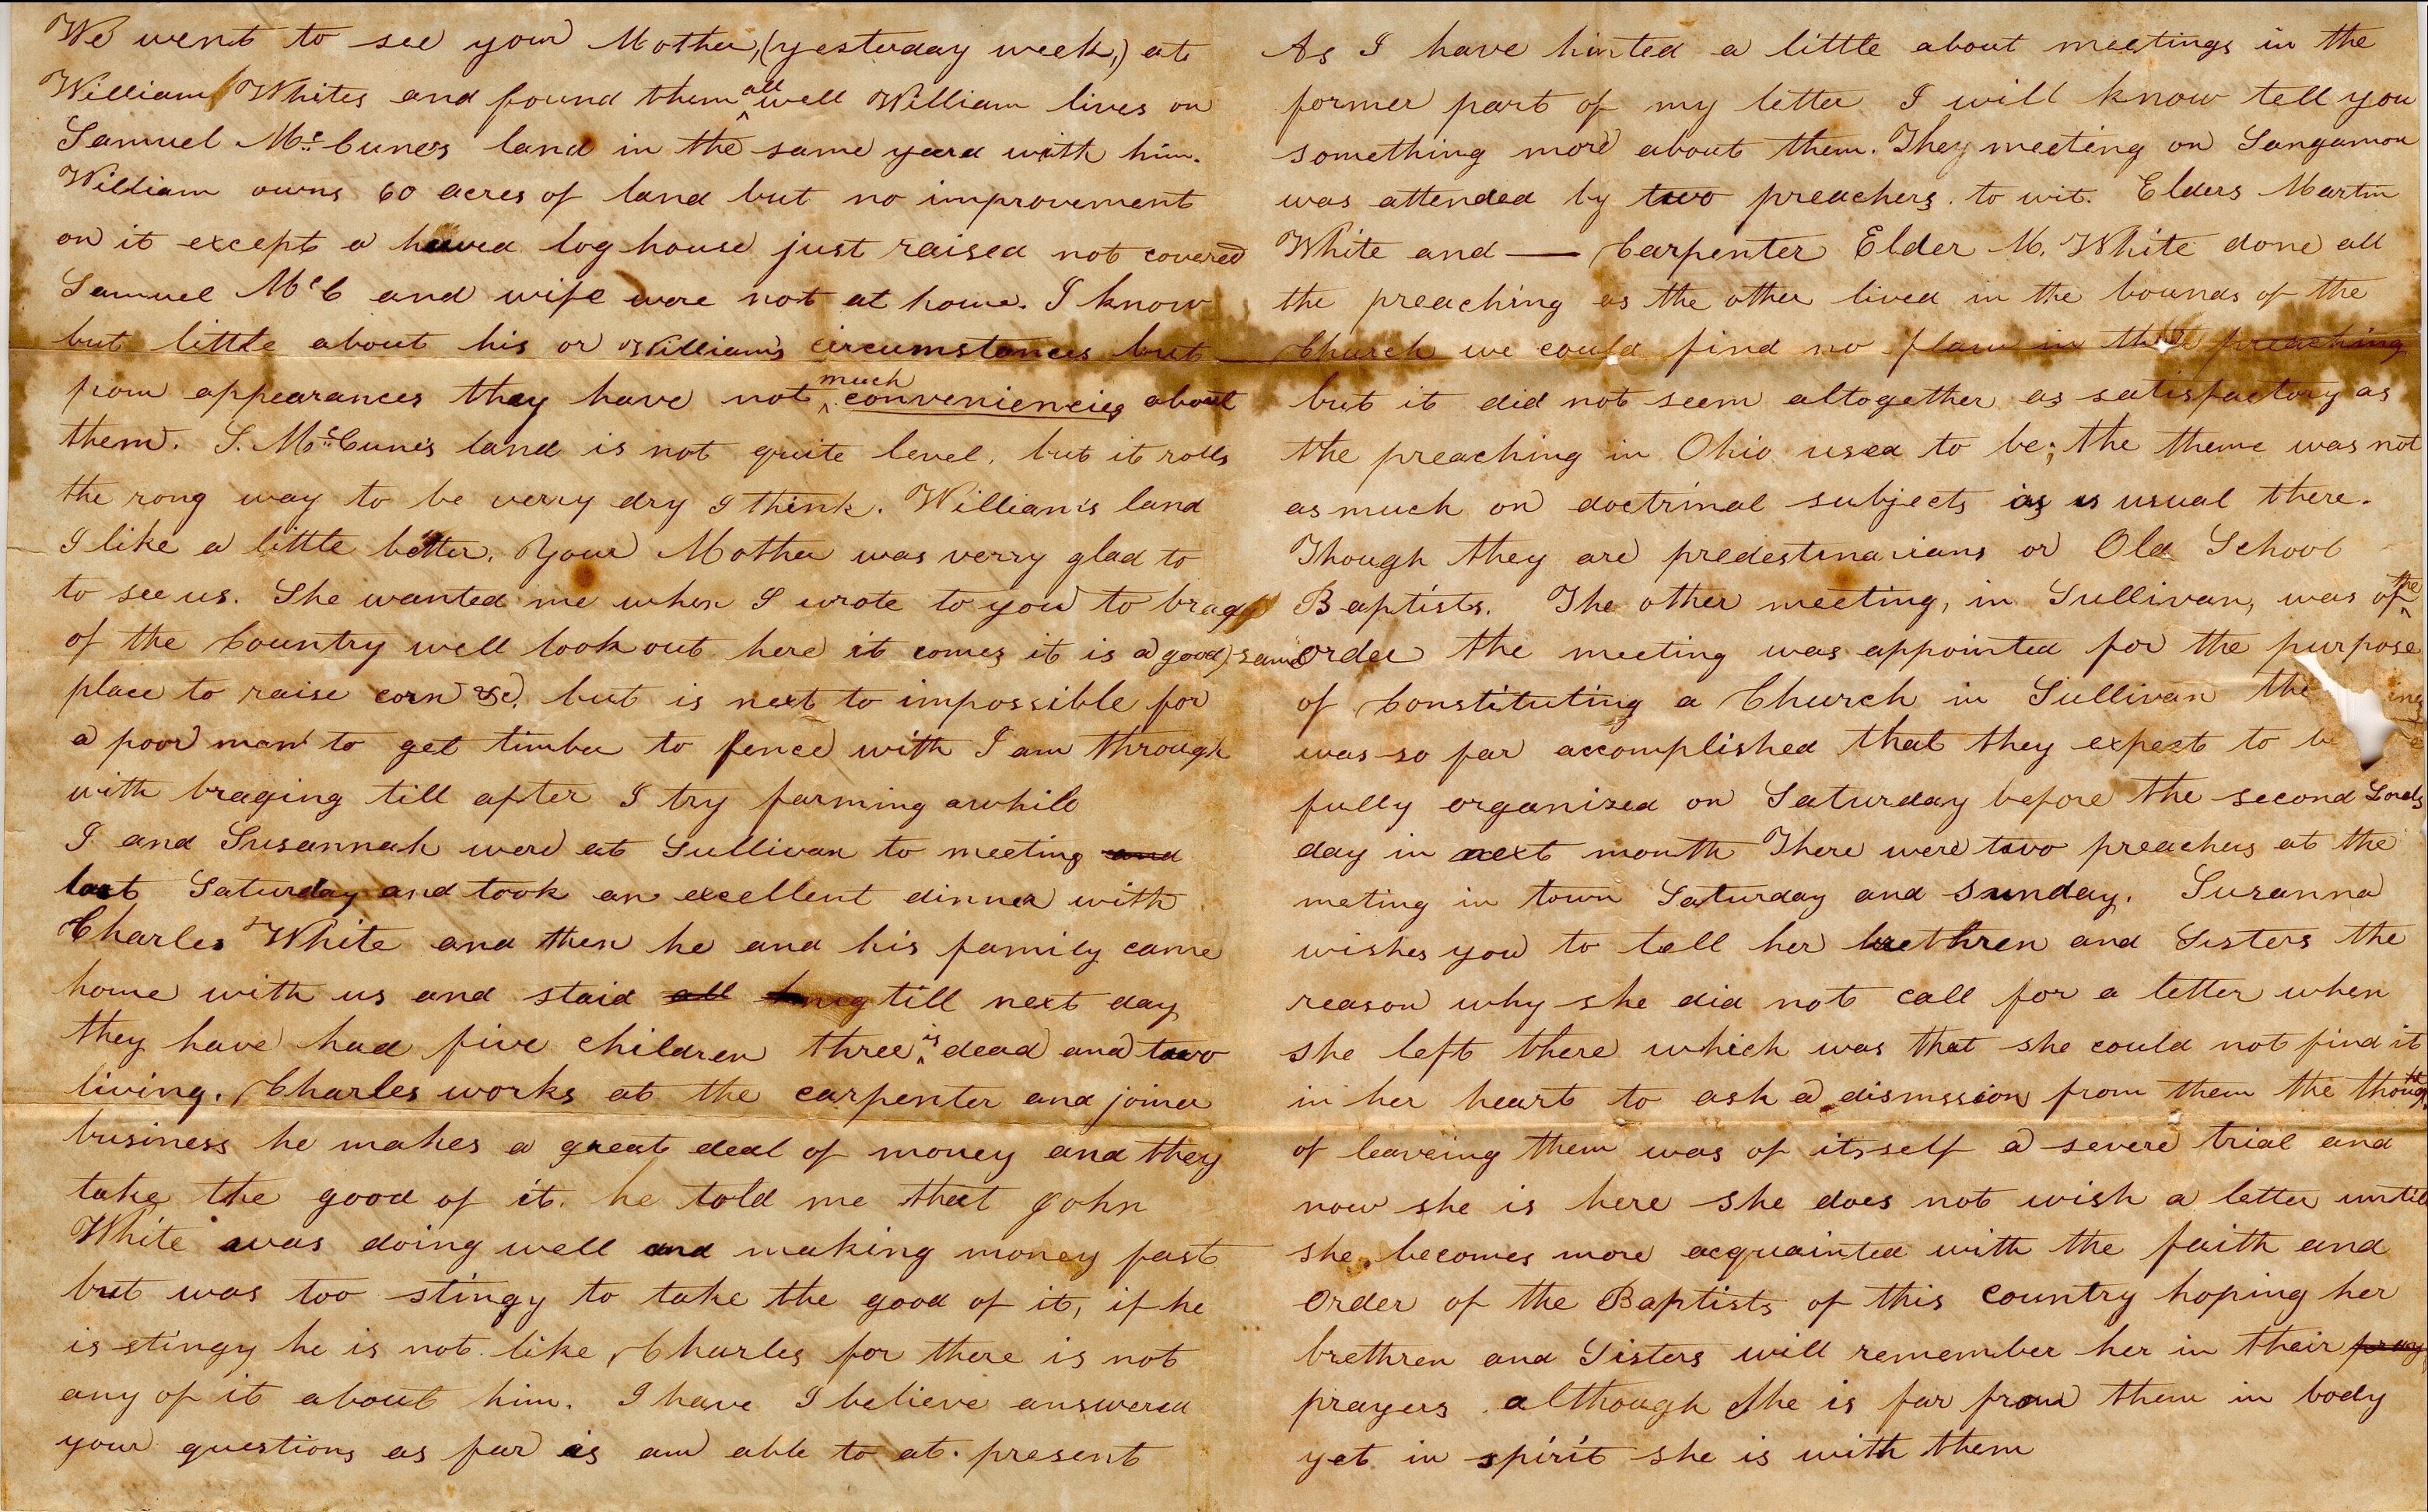 We went to see your Mother, (yesterday week,) at
William Whites and found them all well William lives on
Samuel Mc Cunes land in the same yard with him.
William owns 60 acres of land but no improvement
on it except a hewed log house just raised not covered
Samuel McC and wife were not at home. I know
but little about his or William's circumstances but
from appearances they have not much conveniencies about
them. S. McCune's land is not quite level, but it rolls
the rong way to be verry dry I think. William's land
I like a little better. Your Mother was verry glad to
to see us. She wanted me when I wrote to you to bragg
of the Country well look out here it comes it is a good
place to raise corn &c. but is next to impossible for
a poor man to get timber to fence with I am through
with braging till after I try farming awhile
I and Susannah were at Sullivan to meeting and
last Saturday and took an excellent dinner with
Charles White and then he and his family came
home with us and staid all till next day
they have had five children three is dead and two
living. Charles works at the carpenter and joiner
business he makes a great deal of money and they
take the good of it. he told me that John
White was doing well and making money fast
but was too stingy to take the good of it, if he
is stingy he is not like Charles for there is not
any of it about him. I have I believe answered
your questions as far as am able to at present
As I have hinted a little about meetings in the
former part of my letter I will know tell you
something more about them. They meeting on Sangamon
was attended by two preachers. to wit. Elders Martin
White and — Carpenter Elder M. White done all
the preaching as the other lived in the bounds of the
Church we could find no flaw in the preaching
but it did not seem altogether as satisfactory as
the preaching in Ohio used to be; the theme was not
as much on doctrinal subjects as is usual there.
Though they are predestinarians or Old School
Baptists. The other meeting, in Sullivan, was of the
same order the meeting was appointed for the purpose
of Constituting a Church in Sullivan the
was so far accomplished that they expect to be
fully organized on Saturday before the second Lords
day in next month There were two preachers at the
meting in town Saturday and Sunday. Susanna
wishes you to tell her brethren and Sisters the
reason why she did not call for a letter when
she left there which was that she could not find it
in her heart to ask a dismssion from them the thought
of leaveing them was of itsself a severe trial and
now she is here she does not wish a letter until
she becomes more acquainted with the faith and
order of the Baptists of this country hoping her
brethren and Sisters will remember her in their pray
prayers although she is far from them in body
yet in spirit she is with them